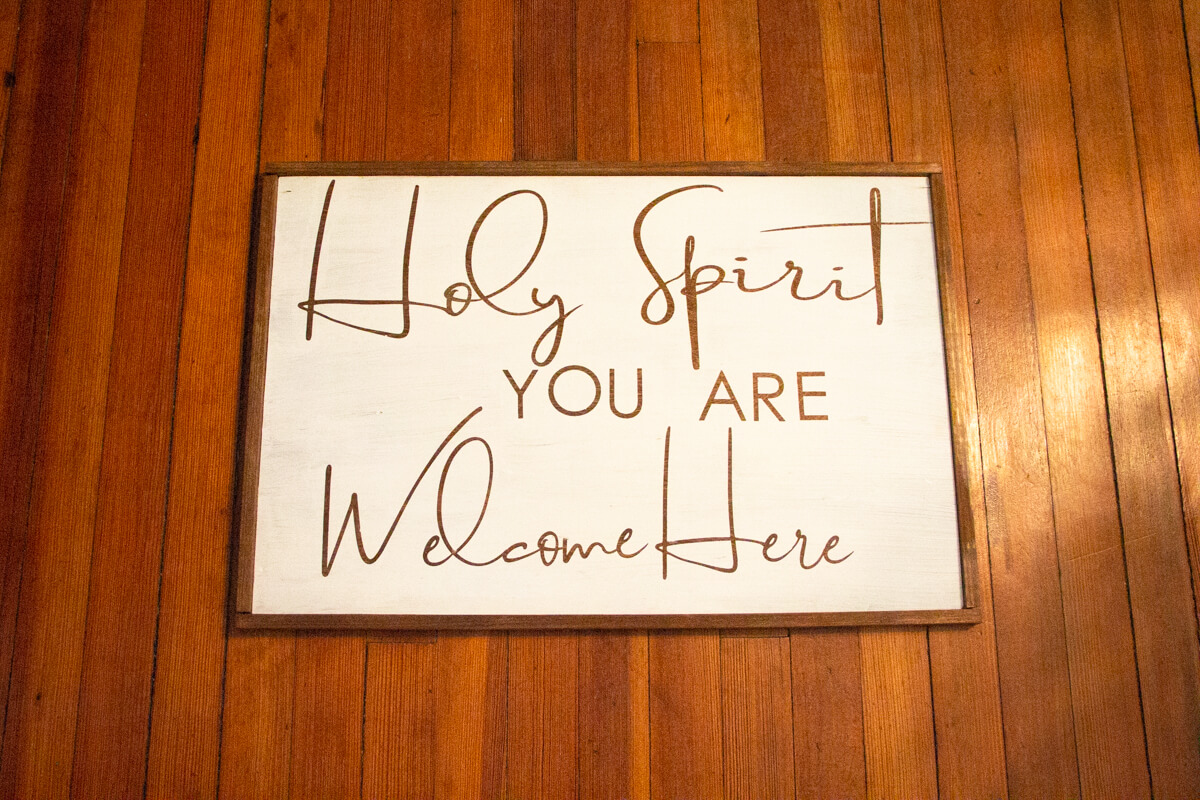 Holy Spirit
YOU ARE
Welcome Here